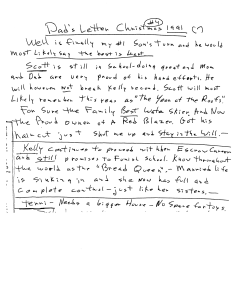 #4
Dad's Letter Christmas 1991
Well is finally my #1 Son's turn and he would
most likely say the best is last.
Scott is still in School-doing great and Mom
and Dad are very proud of his hard efforts. He
will however not break Kelly record. Scott will most
likely remember this year as "The Year of the Roofs"
For Sure the Family Best Water Skier, And Now
the Proud owner of A Red Blazer. Got his
haircut just Shot me up and stay in the Will.-
Kelly continues to proceed with her Escrow Career
and still promises to Finish School. Know throughout
the world as the "Bread Queen".- Married life
is Sinking in and she now has full and
Complete control-just like her sisters.-
Terri- Needs a bigger House- No Space for toys.